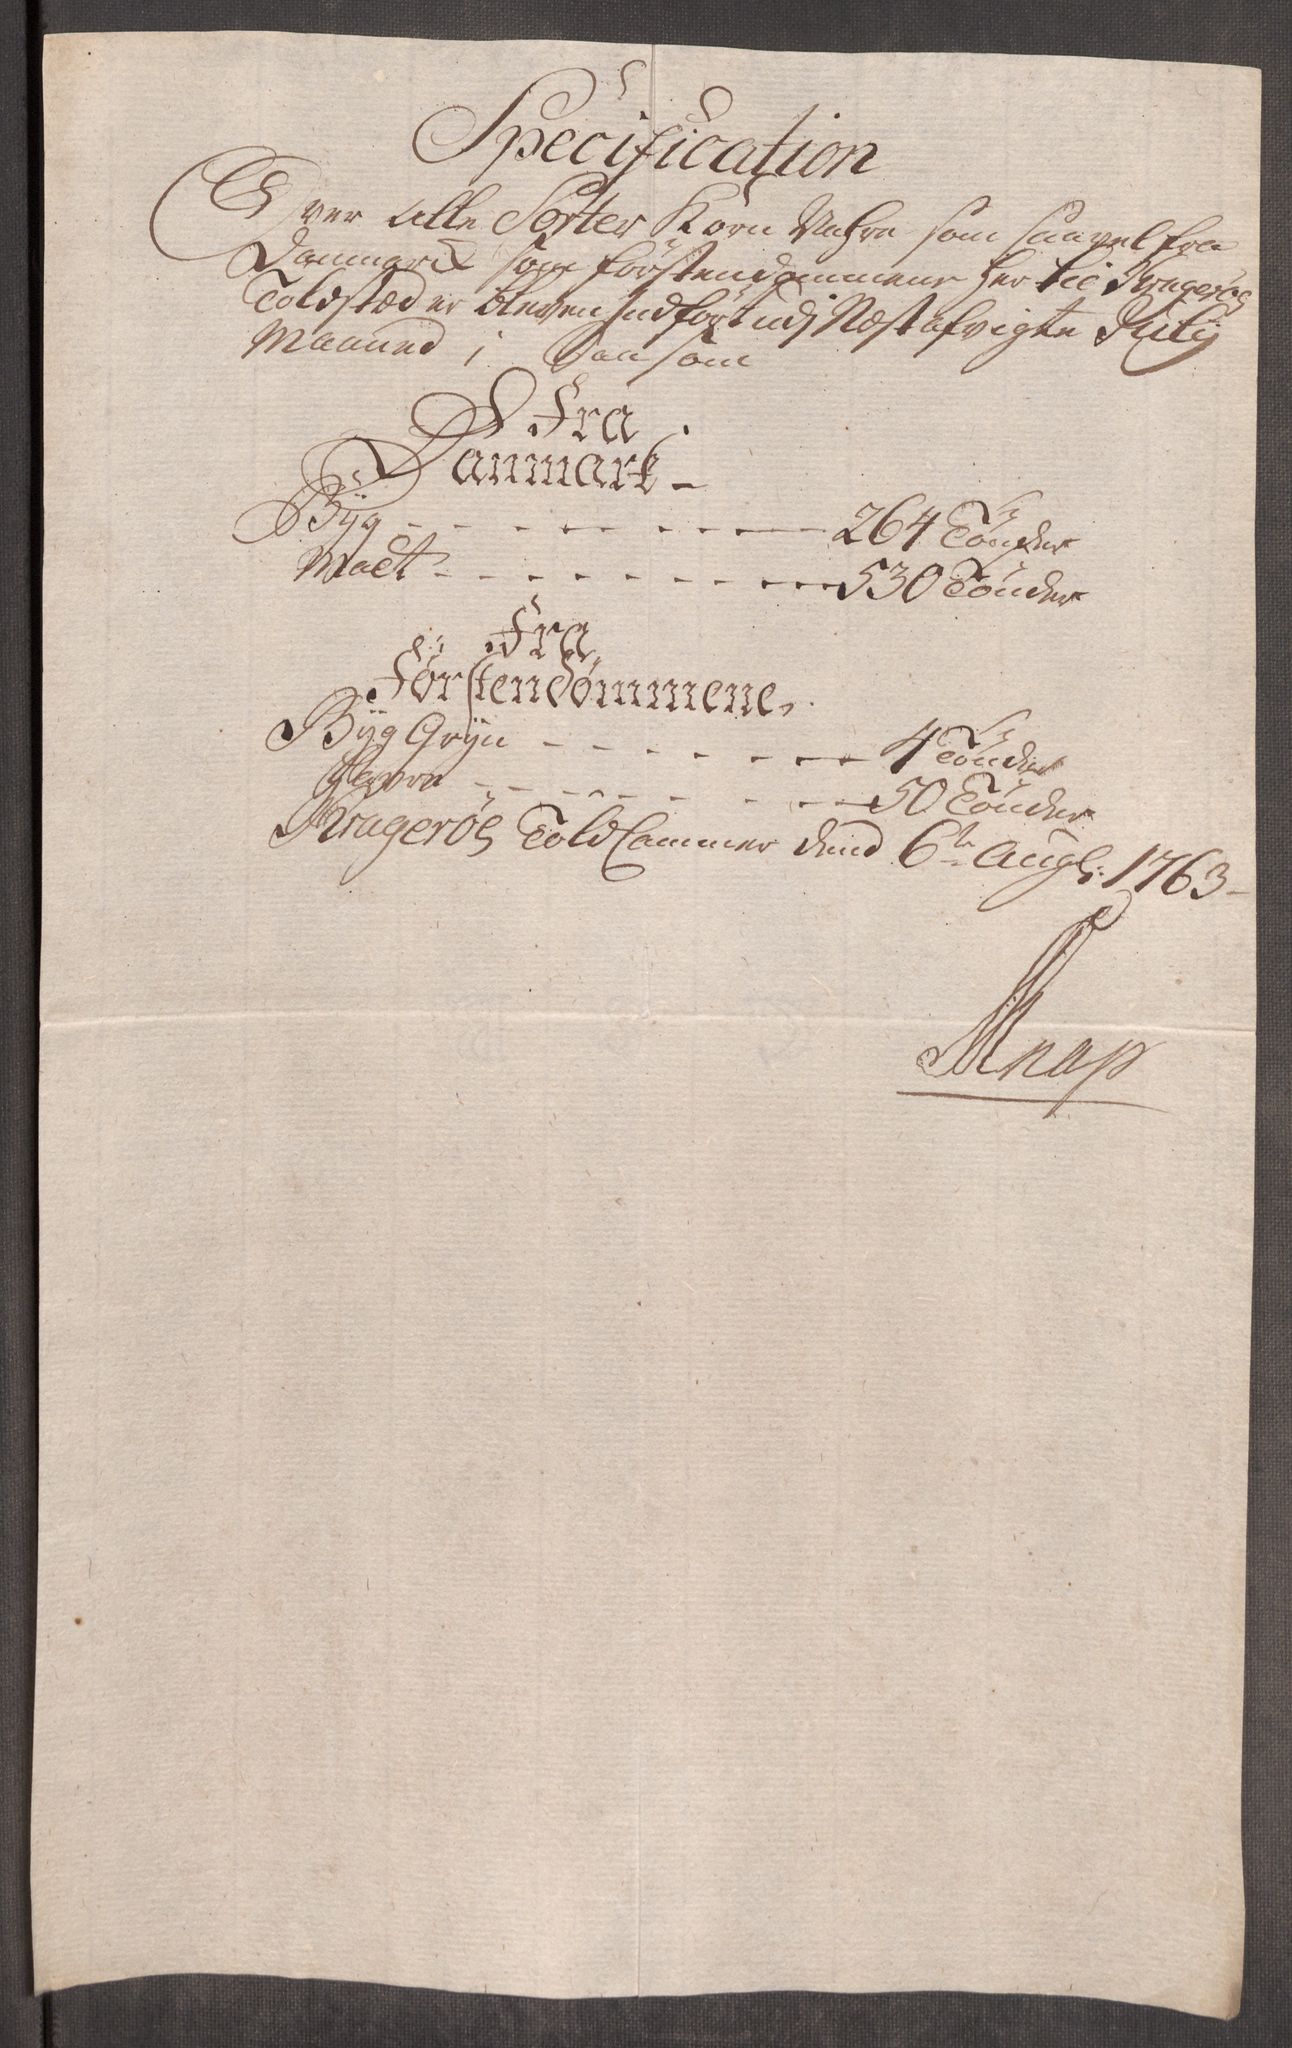 Specification
Over alle Sorter Korn Vahre som saavel fra
Danmark som förstendömmene her til Kragerøe
Toldstæd er bleven Indfört udj Næst afvigte Julij
Maaned, Saasom
Fra
Danmark -
Byg - - - - - - - - - 264 Tönder
Malt - - - - - - - - - 530 Tönder
Fra
Førstendömmene,
Byg Gryn - - - - - - - 4 Tönder
Havre - - - - - - - - 50 Tönder
Kragerøe Told Cammer dend 6te Augs: 1763 -
Knap